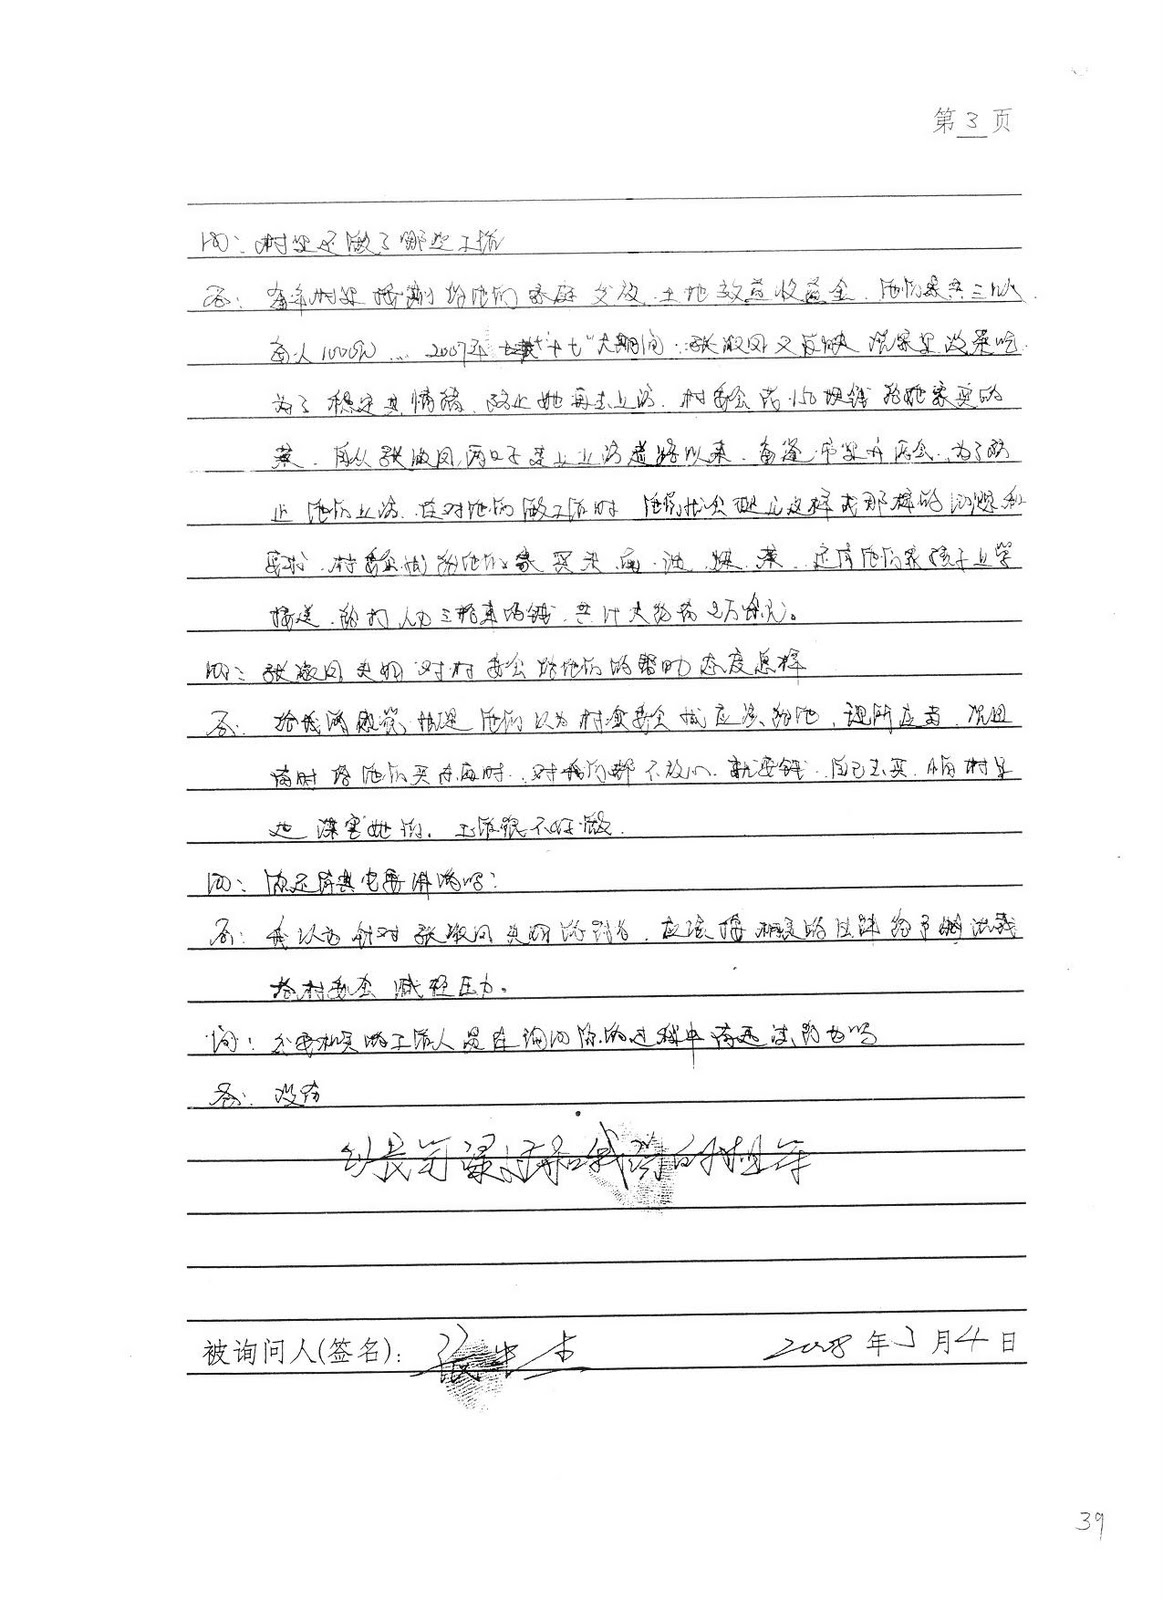 第3页
问：村里还做了哪些工作
答：每年村里按时给他们家庭发放土地效益收益金，他们家共三口人
每人1000元 2007年"十七"大期间，张淑凤又反映说家里没菜吃
为了稳定其情绪，防止她再去上访，村委会花150块钱给她家买的
菜，自从张淑凤两口子走上上访道路以来，每逢市里开两会，为了防
止他们上访，在对他们做工作时，他们就会提出这样或那样的问题和
要求，村委会就给他们家买米、面、油、煤、菜，还有他们家孩子上学
接送，给打人力三轮车的钱，共计大约花2万余元。
问：张淑凤夫妇对村委会给他们的帮助态度怎样
答：他们认为村委会就应该给他，理所应当，况且
有时给他们买东西时，对我们都不放心，就要钱，自己去买，怕村里
谋害她们，工作很不好做。
问：你还有其它要讲的吗？
答：我认为针对张淑凤夫妇的行为，应该按相关的法律给予
给村委会减轻压力。
问：公安机关的工作人员在询问你的过程中有违法行为吗
答：没有
以上
和我
的
被询问人(签名)：
2008年3月4日
39